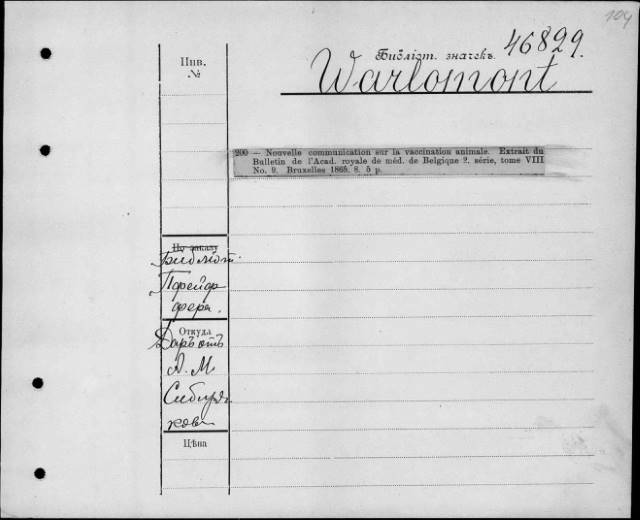 104
Библіот. значекъ 46829.
Warlomont
Инв.
№
200 — Nouvelle communication sur la vaccination animale. Extrait du
Bulletin de l'Acad. royale de méd. de Belgique 2. série, tome VIII
No. 9. Bruxelles 1865. 8. 5 p.
По заказу
Библіот.
Пфейф
фера.
Откуда
Даръ отъ
А. М.
Сибиря
кова
Цѣна